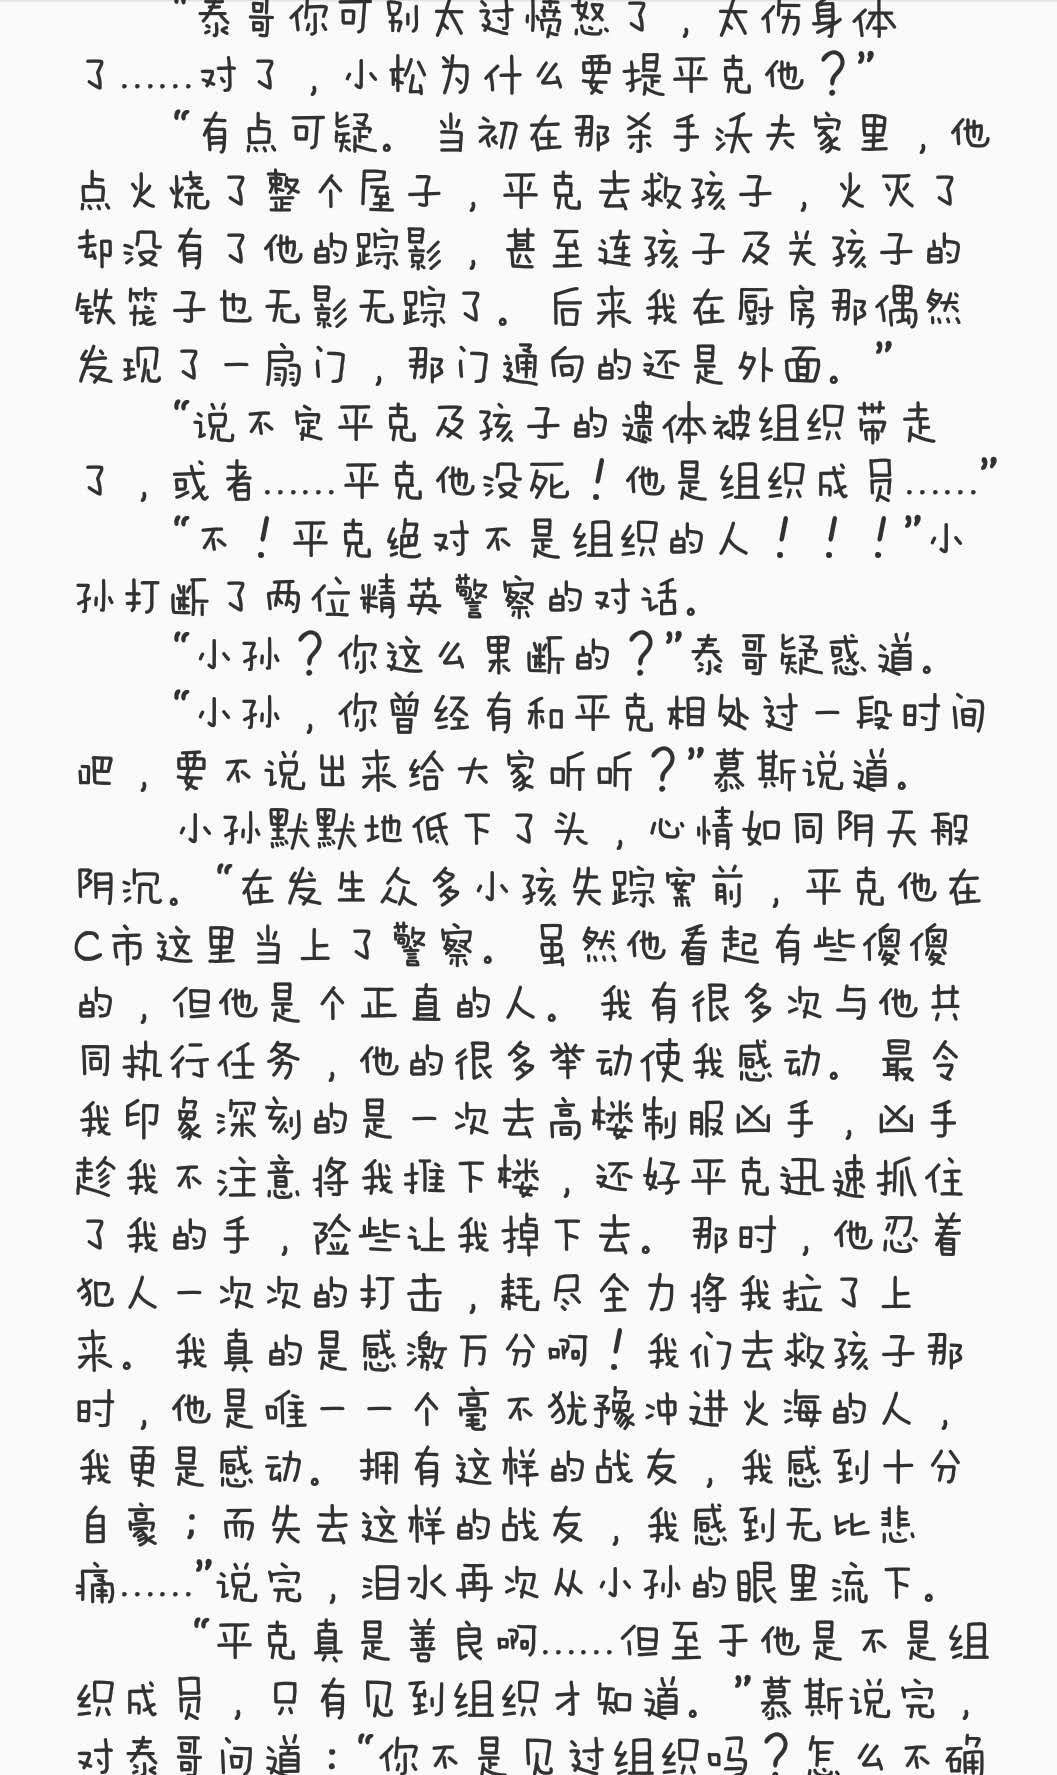 “泰哥你可别太过愤怒了，太伤身体
了……对了，小松为什么要提平克他？”
“有点可疑。当初在那杀手沃夫家里，他
点火烧了整个屋子，平克去救孩子，火灭了
却没有了他的踪影，甚至连孩子及关孩子的
铁笼子也无影无踪了。后来我在厨房那偶然
发现了一扇门，那门通向的还是外面。”
“说不定平克及孩子的遗体被组织带走
了，或者……平克他没死！他是组织成员……”
“不！平克绝对不是组织的人！！！”小
孙打断了两位精英警察的对话。
“小孙？你这么果断的？”泰哥疑惑道。
“小孙，你曾经有和平克相处过一段时间
吧，要不说出来给大家听听？”慕斯说道。
小孙默默地低下了头，心情如同阴天般
阴沉。“在发生众多小孩失踪案前，平克他在
C市这里当上了警察。虽然他看起有些傻傻
的，但他是个正直的人。我有很多次与他共
同执行任务，他的很多举动使我感动。最令
我印象深刻的是一次去高楼制服凶手，凶手
趁我不注意将我推下楼，还好平克迅速抓住
了我的手，险些让我掉下去。那时，他忍着
犯人一次次的打击，耗尽全力将我拉了上
来。我真的是感激万分啊！我们去救孩子那
时，他是唯一一个毫不犹豫冲进火海的人，
我更是感动。拥有这样的战友，我感到十分
自豪；而失去这样的战友，我感到无比悲
痛……”说完，泪水再次从小孙的眼里流下。
“平克真是善良啊……但至于他是不是组
织成员，只有见到组织才知道。”慕斯说完，
对泰哥问道：“你不是见过组织吗？怎么不确